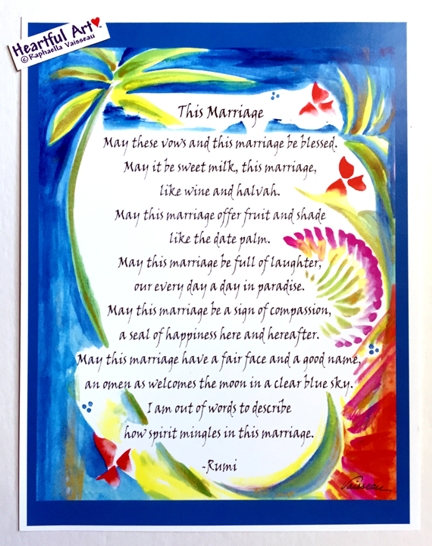 Heartful Art
© Raphaella Vaisseau
This Marriage
May these vows and this marriage be blessed.
May it be sweet milk, this marriage,
like wine and halvah.
May this marriage offer fruit and shade
like the date palm.
May this marriage be full of laughter,
our every day a day in paradise.
May this marriage be a sign of compassion,
a seal of happiness here and hereafter.
May this marriage have a fair face and a good name,
an omen as welcomes the moon in a clear blue sky.
I am out of words to describe
how spirit mingles in this marriage.
-Rumi